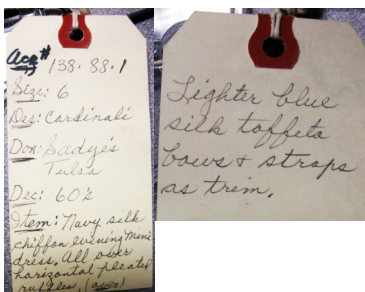 Acq#
138.88.1
Size: 6
Des: Cardinali
Don: Sadye's
Tulsa
Dec: 60's
Item: Navy silk
chiffon evening mini
dress. All over
horizontal pleated
ruffles. (over)
Lighter blue
silk taffeta
bows & straps
as trim.